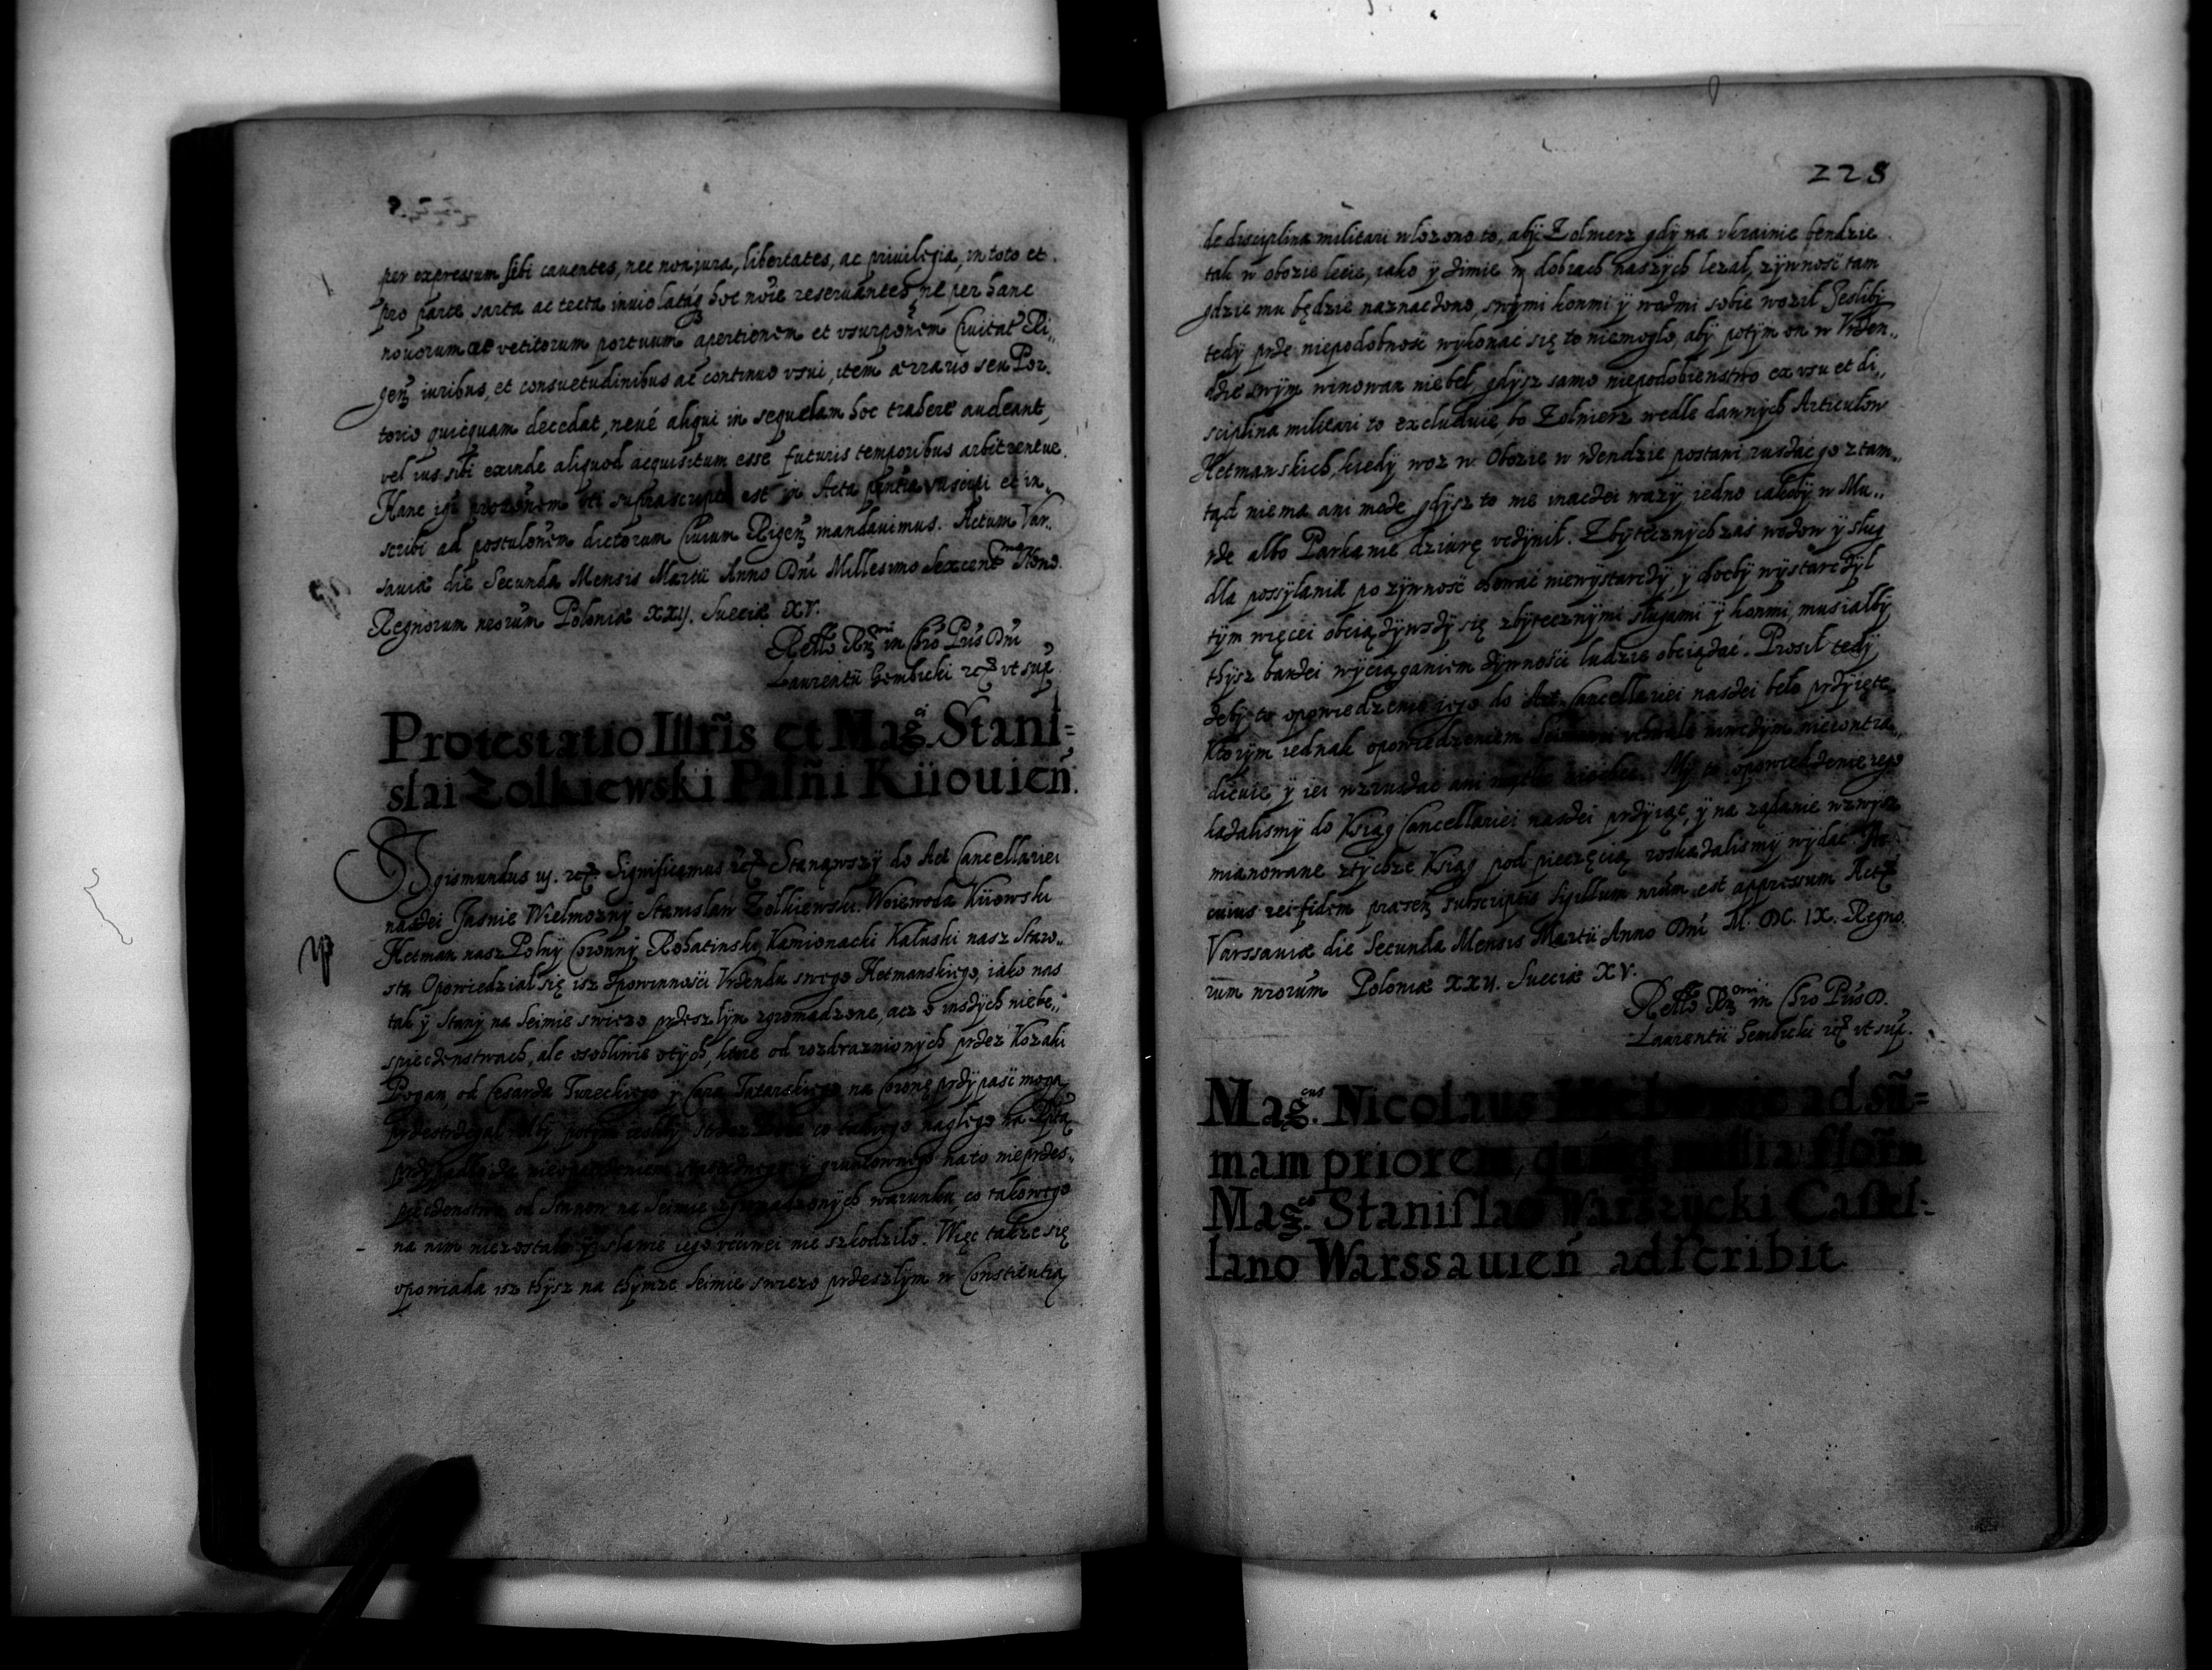 per expressum sibi cauentes, nec non jura, libertates, ac priuilegia, in toto et
pro parte sarta ac tecta inuiolataq hoc noie reseruantes, ne per hanc
nouorum ac vetitorum portuum apertionem et vsurponem Ciuitat Ri„
gen iuribus, et consuetudinibus ac continuo vsui, item aerario seu Por„
torio quicquam decedat, neue aliqui in sequelam hoc trahere audeant,
vel ius sibi exinde aliquod acquisitum esse futuris temporibus arbitrentur.
Hanc igr uti suprascripta est in Acta suscipi et in„
scribi ad postulonem dictorum Ciuium Rigen mandauimus. Actum Var„
sauiæ die Secunda Mensis Martii Anno Dni Millesimo Sexcent Nono.
Regnorum nrorum Poloniæ XXII. Sueciæ XV.
in Chro Pris Dni
Laurentii Gembicki etc vt sup
Protestatio Illris et Mag.ci Stani=
slai Zolkiewski Palni Kiiouien.
Sigismundus III. etc. Significamus etc Stanąwszy do Act Cancellariei
naszei Jasnie Wielmozny Stanislaw Zolkiewski Woiewoda Kiiowski
Hetman nasz Polny Coronny, Rohatinski, Kamionacki Kałuski nasz Staro„
sta Opowiedział się isz zpowinnosci Vrzendu swego Hetmanskiego, iako nas
tak y Stany na Seimie swiezo przeszlym zgromadzone, acz o inszych niebe„
spieczenstwach, ale osobliwie otych, ktore od rozdraznionych przez Kozaki
Pogan, od Cesarza Tureckiego y Cara Tatarskiego na Coronę przypasć mogą
przestrzegał co takiego naglego na Rptą
przypadło y gruntownego na to nieprzes„
pieczenstwo od Stanow na Seimie zgromadzonych warunku, co takowego
na nim niezostało y sławie iego vcciwei nie szkodziło. Więc takze się
opowiada isz thysz na thymze Seimie swiezo przeszłym w Constitutią
225
de disciplina militari wlozono to, aby Zolnierz gdy na vkrainie bendzie
tak w obozie lecie, iako y zimie w dobrach naszych lezał, zywnosć tam
gdzie mu będzie naznaczono, swymi konmi y wozmi sobie woził Jesliby
tedy prze niepodobnosć wykonać się to niemogło, aby potym on w Vrzen„
dzie swym winowan niebeł, gdysz samo niepodobienstwo ex vsu et di„
sciplina militari to excluduie, bo Zolnierz wedle dawnych Articułow
Hetmanskich, kiedy woz w Obozie w rzendzie postawi ruszać go ztam„
tąd niema ani moze gdysz to nie inaczei wazy iedno iakoby w Mu„
rze albo Parkanie dziurę vczynił. Zbytecznych zas wozow y sług
dla possyłania po zywnosć chować niewystarczy, y chocby wystarczył
tym więcei obciązywszy się zbytecznymi sługami y konmi, musiałby
thysz barzei wyciąganiem zywnosci ludzie obciązać. Prosił tedy
zeby to opowiedzenie iego do Act Cancellariei naszei beło przyięte,
Ktorym iednak opowiedzeniem vchwale niwczym niecontra„
dicuie, y iei wzruszać ani My to opowiedzenie iego
kazalismy do Ksiąg Cancellariei naszei przyiąć, y na ządanie wzwysz
mianowane ztychze Ksiąg pod pieczęcią roskazalismy wydać. In
cuius rei fidem præsen subscriptis Sigillum nrum est appressum Act
Varssauiæ die Secunda Mensis Martii Anno Dni M. DC. IX. Regno
rum nrorum Poloniæ XXII. Sueciæ XV.
in Chro Pris D.
Laurentii Gembicki etc vt sup.
Mag.cus Nicolaus ad sū=
mam priorem, florn
Mag.co Stanislao Warszycki Castel=
lano Warssauien adscribit